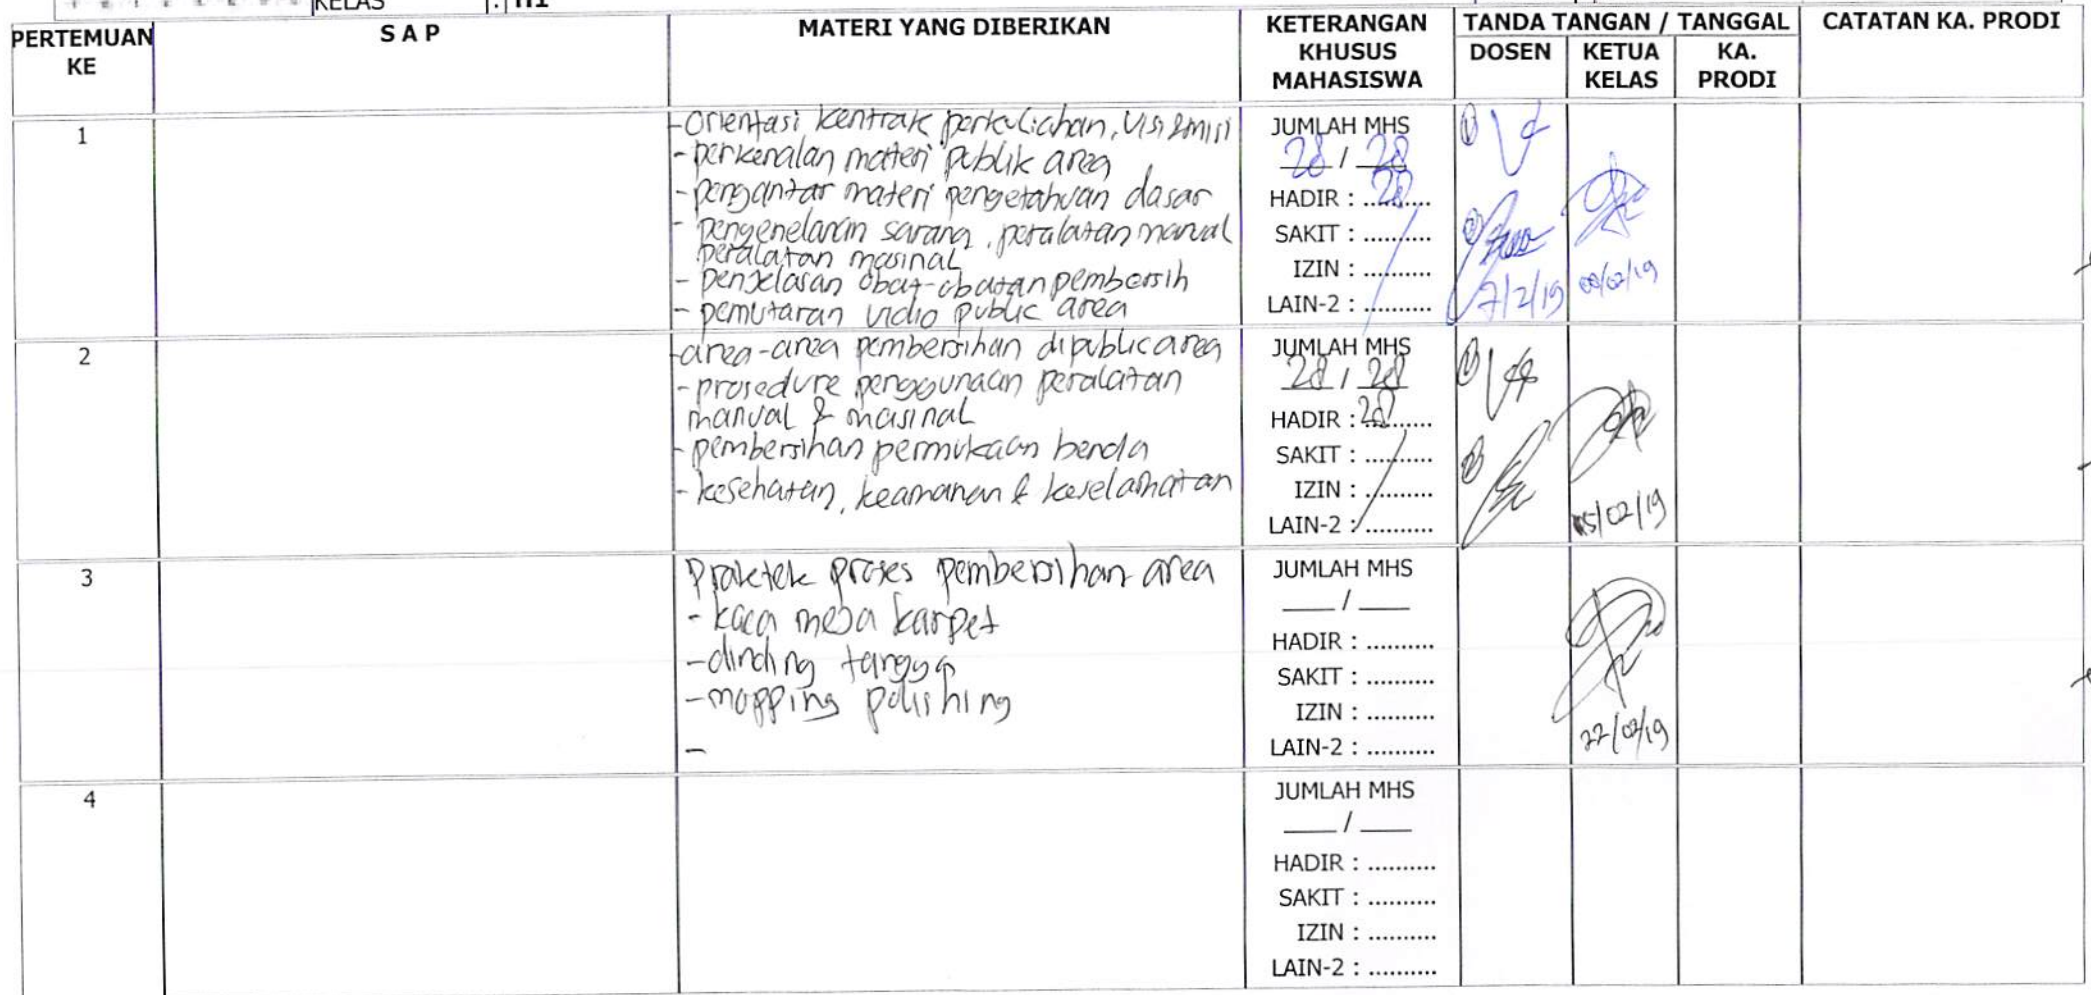 KELAS : H1
PERTEMUAN KE
S A P
MATERI YANG DIBERIKAN
KETERANGAN KHUSUS MAHASISWA
TANDA TANGAN / TANGGAL
DOSEN
KETUA KELAS
KA. PRODI
CATATAN KA. PRODI
1
-Orientasi kentrak perkuliahan, Visi & misi
- perkenalan materi publik area
- pengantar materi pengetahuan dasar
- pengenelanan sarana, peralatan manual
peralatan masinal
- penjelasan obat-obatan pembersih
- pemutaran vidio public area
JUMLAH MHS
28 / 28
HADIR : 28
SAKIT : ..........
IZIN : ..........
LAIN-2 : ..........
1)
2)
7/2/19
08/02/19
2
-area-area pembersihan dipublic area
- prosedure penggunaan peralatan
manual & masinal
- pembersihan permukaan benda
- kesehatan, keamanan & keselamatan
JUMLAH MHS
28 / 28
HADIR : 28
SAKIT : ..........
IZIN : ..........
LAIN-2 : ..........
1)
2)
15/02/19
3
Praktek proses pembersihan area
- kaca meja karpet
- dinding tangga
- mopping polishing
-
JUMLAH MHS
____ / ____
HADIR : ..........
SAKIT : ..........
IZIN : ..........
LAIN-2 : ..........
22/02/19
4
JUMLAH MHS
____ / ____
HADIR : ..........
SAKIT : ..........
IZIN : ..........
LAIN-2 : ..........